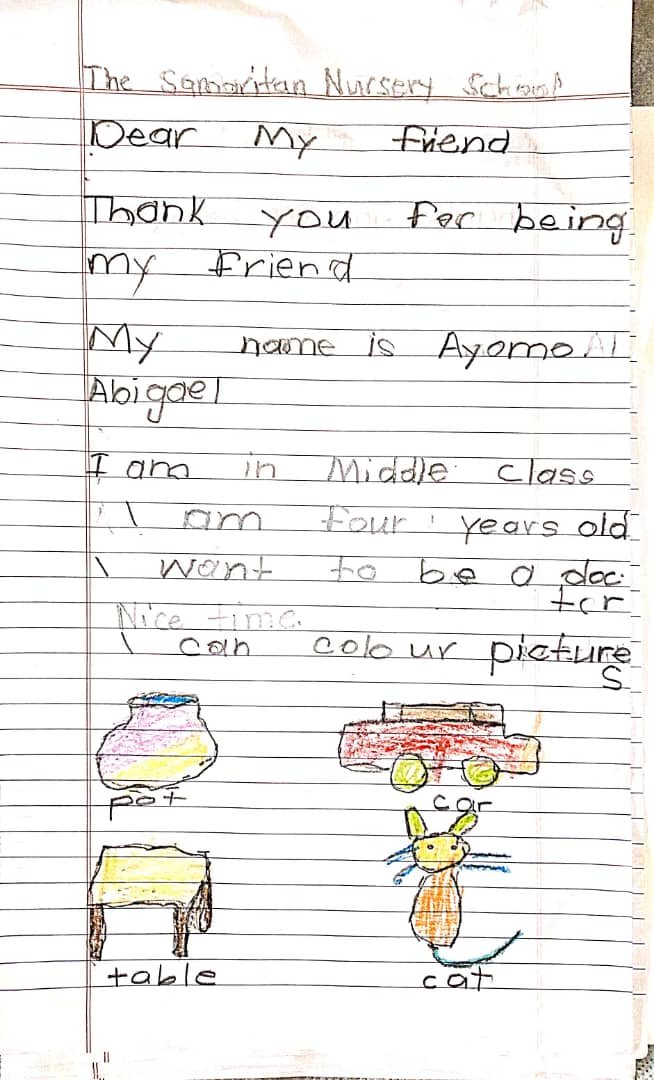 The Samaritan Nursery School
Dear My friend
Thank you for being
my friend
My name is Ayomo Al
Abigael
I am in Middle class
I am four years old
I want to be a doc
tor
Nice time.
I can colour picture
s
pot car
table cat